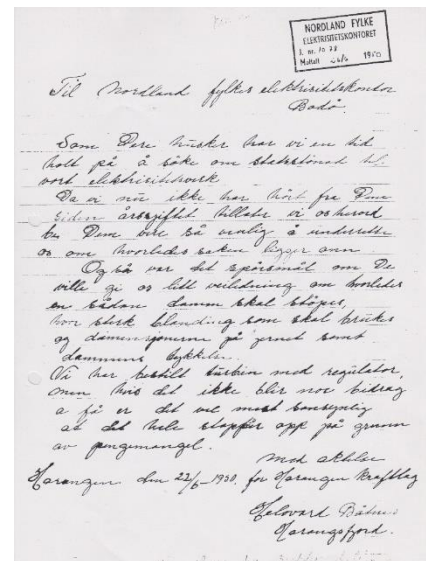 NORDLAND FYLKE
ELEKTRISITETSKONTORET
J. nr. 1028
Mottatt 26/6 1950
Til Nordland fylkes elektrisitetskontor
Bodø.
Som Dere husker har vi en tid
holt på å söke om statsstönad til
vort elektrisitetsverk
Da vi nu ikke har hört fra Dem
siden årsskiftet tillater vi os herved
be Dem være så venlig å underrette
os om hvorledes saken ligger ann
Også var det spörsmål om De
ville gi os litt veiledning om hvorledes
en sådan damm skal stöpes,
hvor sterk blanding som skal brukes
og dimensjonerne på jernet samt
dammens tykkelse.
Vi har bestilt turbin med regulator,
men hvis det ikke blir noe bidrag
a få er det vel mest sansynlig
at det hele stopper opp på grunn
av pengemangel.
med aktelse
Morangen den 22/6-1950. for Morangen Kraftlag
Båtnes